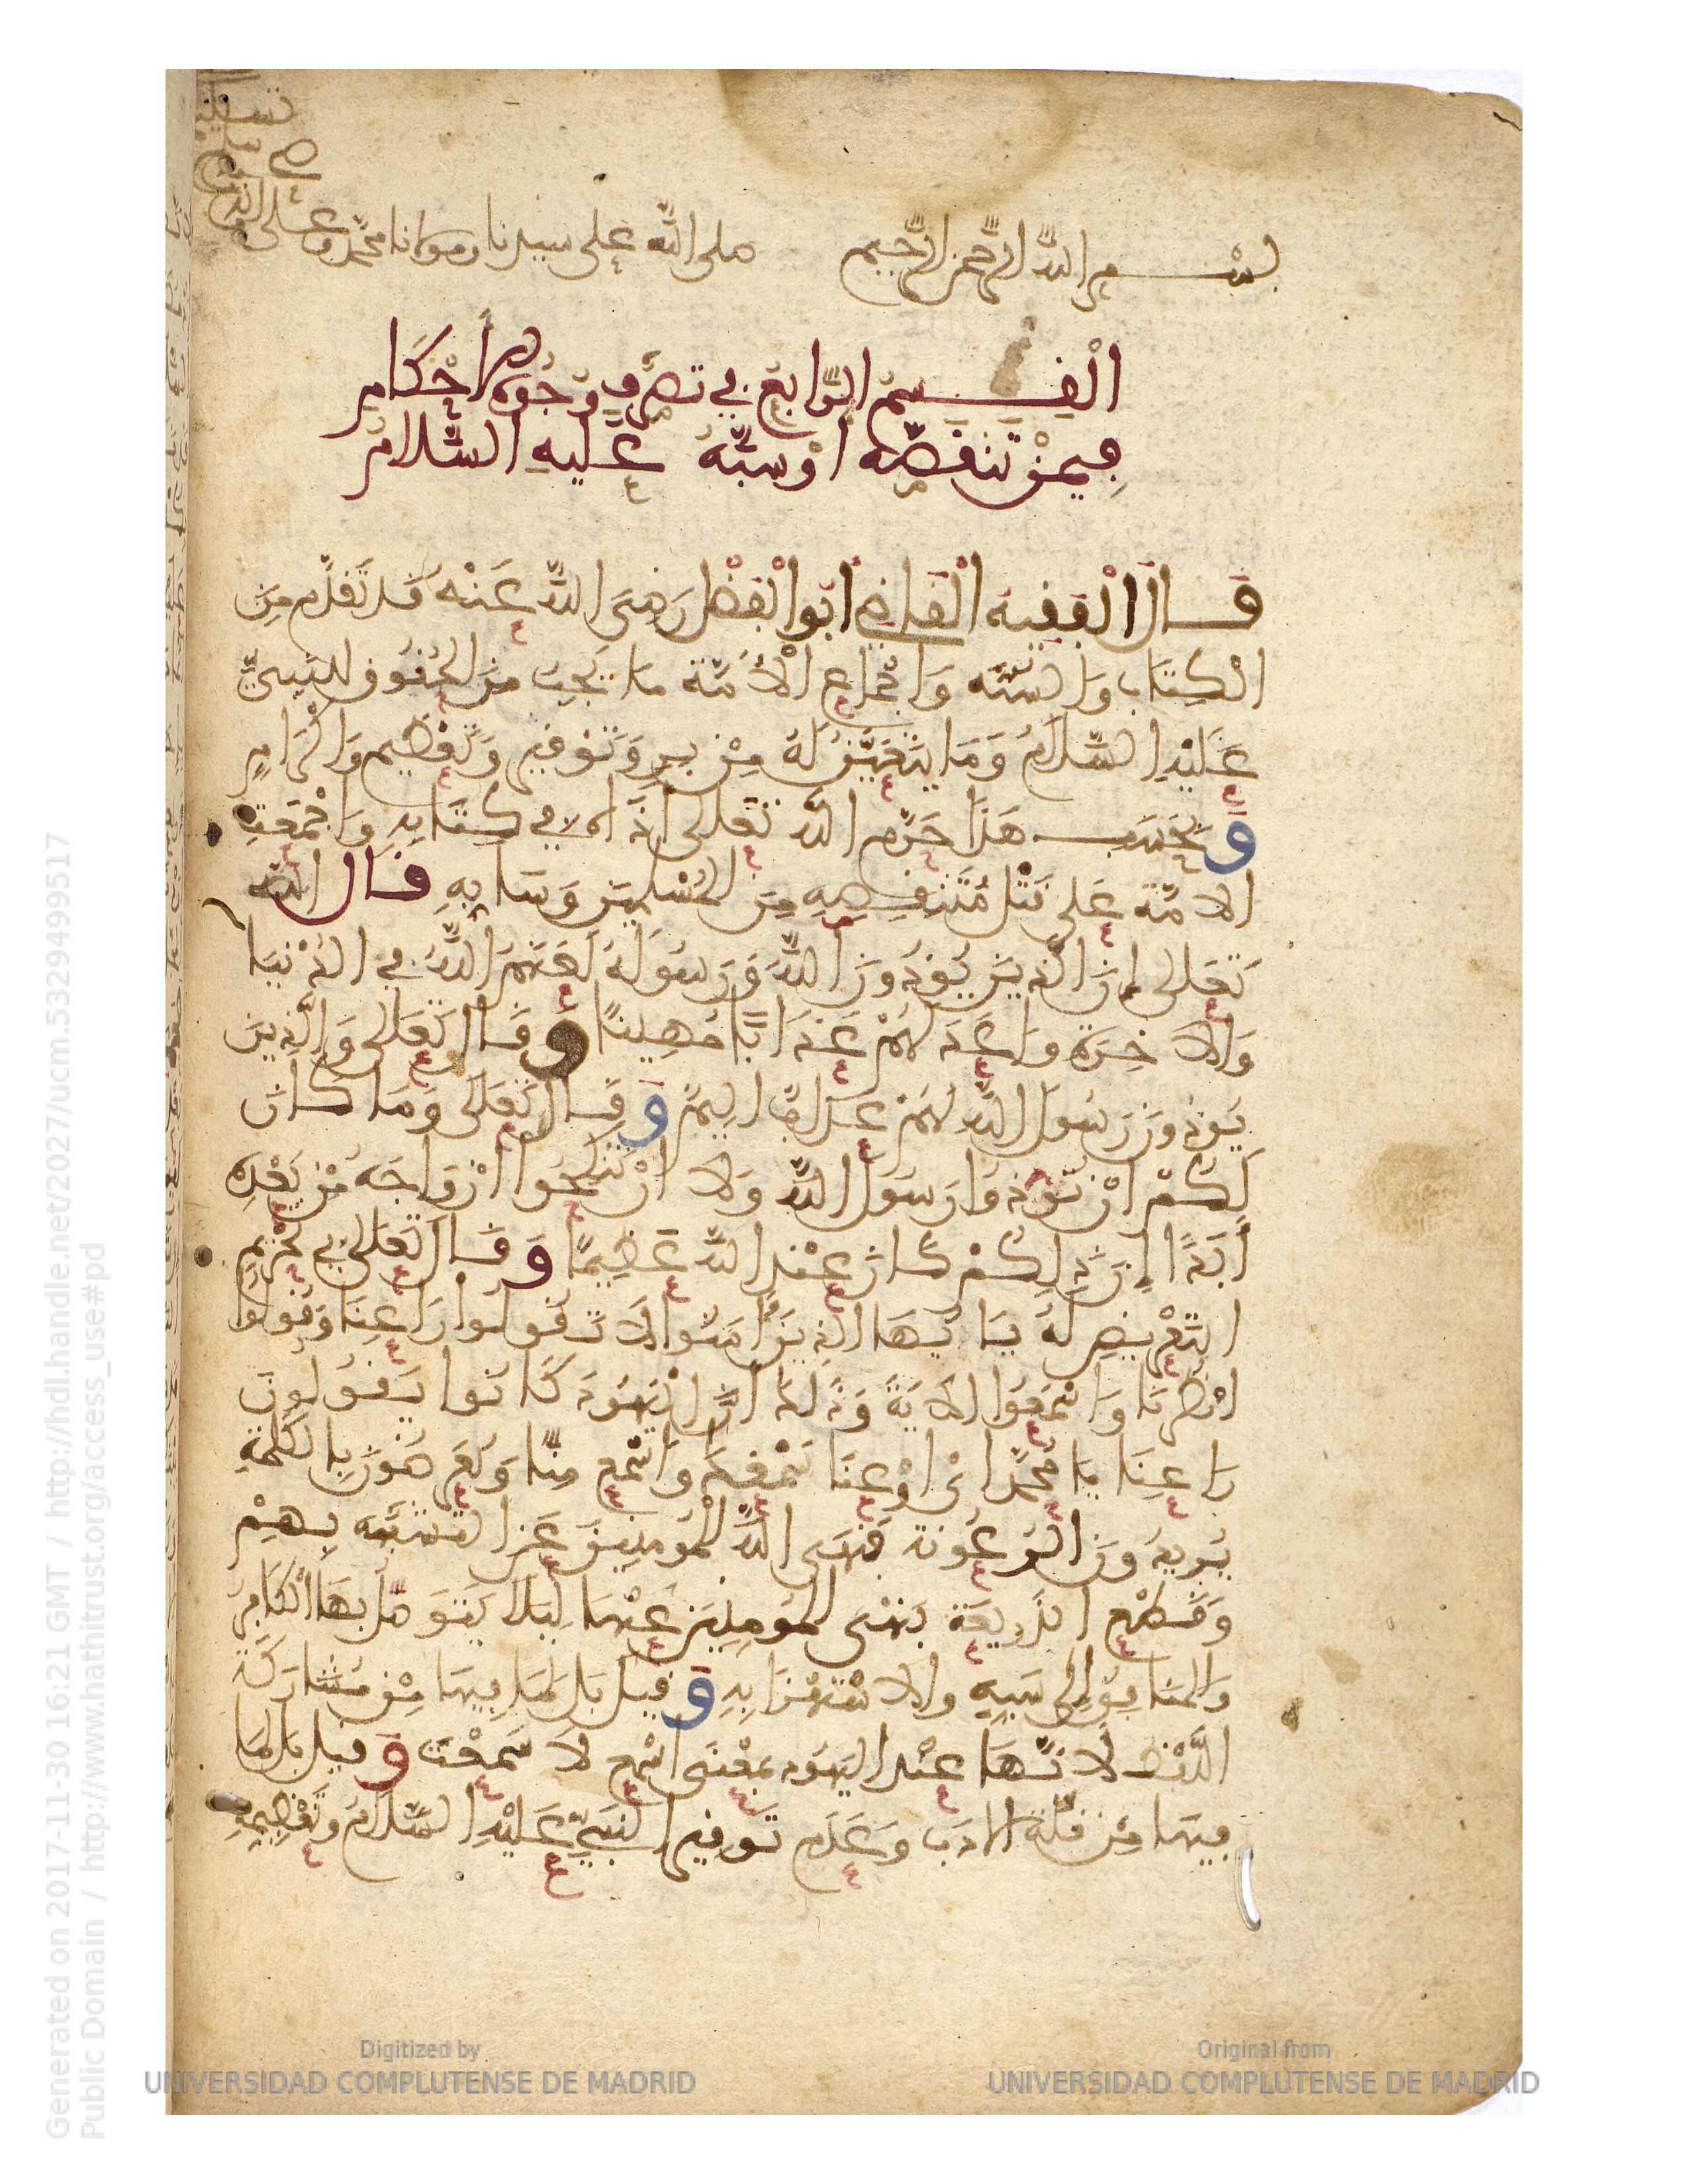 بسم الله الرحمن الرحيم صلى الله على سيدنا ومولانا محمد وعلى
القسم الرابع في تصرف وجوه الأحكام
فيمن تنقصه أو سبه عليه السلام
قال الفقيه القاضي أبو الفضل رضي الله عنه قد تقدم من
الكتاب والسنة وإجماع الأمة ما يجب من الحقوق للنبي
عليه السلام وما يتعين له من بر وتوقير وتعظيم وإكرام
وبحسب هذا حرم الله تعالى أذاه في كتابه وأجمعت
الأمة على قتل متنقصه من المسلمين وسابه قال الله
تعالى إن الذين يوذون الله ورسوله لعنهم الله في الدنيا
والآخرة وأعد لهم عذابا مهينا وقال تعالى والذين
يوذون رسول الله لهم عذاب أليم وقال تعالى وما كان
لكم أن توذوا رسول الله ولا أن تنكحوا أزواجه من بعده
أبدا إن ذلكم كان عند الله عظيما وقال تعالى في تحريم
التعريض له يا أيها الذين آمنوا لا تقولوا راعنا وقولوا
انظرنا واسمعوا الآية وذلك أن اليهود كانوا يقولون
راعنا يا محمد أي أرعنا سمعك واسمع منا ويعرضون بالكلمة
يريدون الرعونة فنهى الله المومنين عن التشبه بهم
وقطع الذريعة بنهي المومنين عنها ليلا يتوصل بها الكافر
والمنافق إلى سبه والاستهزاء به وقيل بل لما فيها من مشاركة
اللفظ لأنها عند اليهود بمعنى اسمع لا سمعت وقيل بل لما
فيها من قلة الأدب وعدم توقير النبي عليه السلام وتعظيمه
Generated on 2017-11-30 16:21 GMT / http://hdl.handle.net/2027/ucm.5329499517
Public Domain / http://www.hathitrust.org/access_use#pd
Digitized by
UNIVERSIDAD COMPLUTENSE DE MADRID
Original from
UNIVERSIDAD COMPLUTENSE DE MADRID